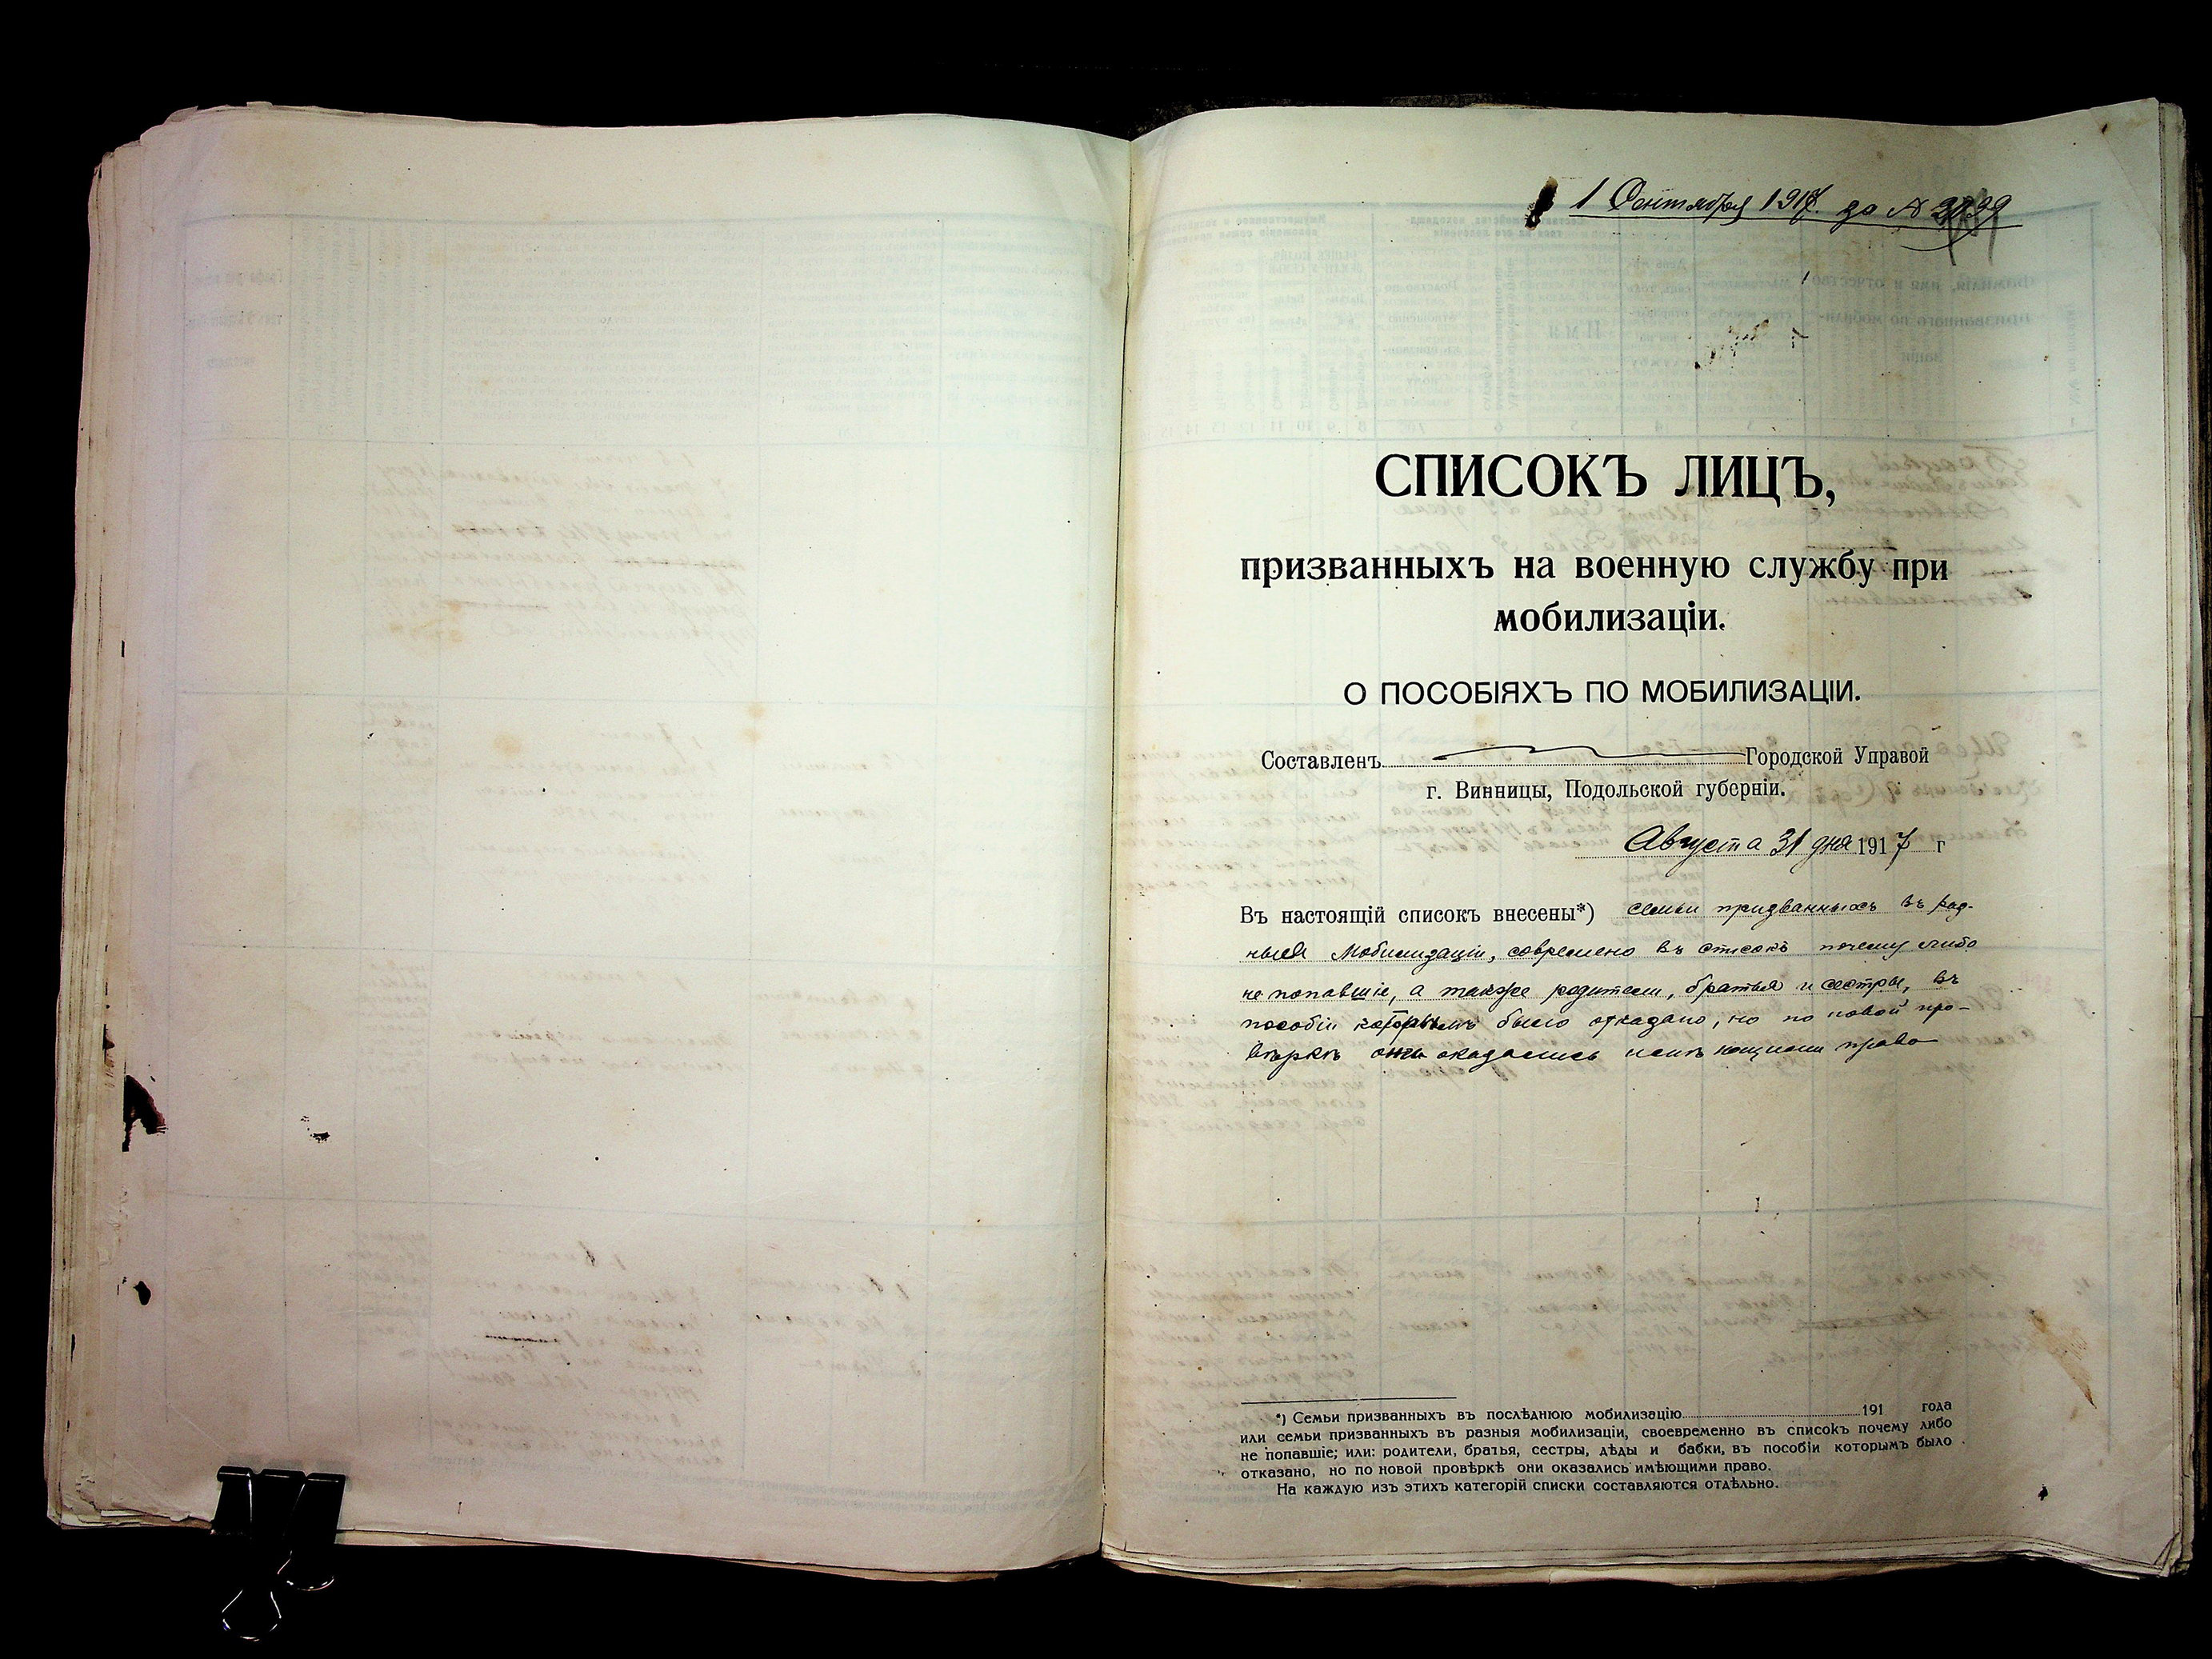 1 Сентября 1917. до №
СПИСОКЪ ЛИЦЪ,
призванныхъ на военную службу при
мобилизаціи.
О ПОСОБІЯХЪ ПО МОБИЛИЗАЦІИ.
Составленъ Городской Управой
г. Винницы, Подольской губерніи.
Августа 31 дня 1917 г
Въ настоящій списокъ внесены*) семьи призванныхъ въ раз-
ныя мобилизаціи, современо въ списокъ почему либо
не попавшіе, а также родители, братья и сестры, въ
пособіи которымъ было отказано, но по новой про-
вѣркѣ они оказались имѣющими право
*) Семьи призванныхъ въ послѣднюю мобилизацію 191 года
или семьи призванныхъ въ разныя мобилизаціи, своевременно въ списокъ почему либо
не попавшіе; или: родители, братья, сестры, дѣды и бабки, въ пособіи которымъ было
отказано, но по новой провѣркѣ они оказались имѣющими право.
На каждую изъ этихъ категорій списки составляются отдѣльно.